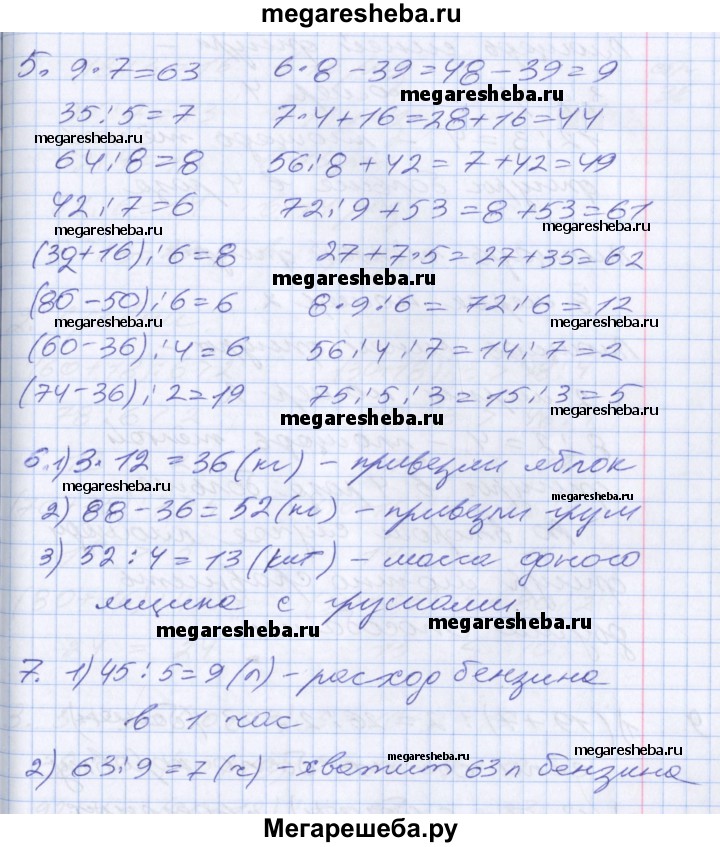 megaresheba.ru
5. 9·7=63 6·8-39=48-39=9
megaresheba.ru
35:5=7 7·4+16=28+16=44
megaresheba.ru
64:8=8 56:8+42=7+42=49
42:7=6 72:9+53=8+53=61
megaresheba.ru megaresheba.ru
(32+16):6=8 27+7·5=27+35=62
megaresheba.ru megaresheba.ru
(86-50):6=6 8·9:6=72:6=12
megaresheba.ru megaresheba.ru
(60-36):4=6 56:4:7=14:7=2
megaresheba.ru
(74-36):2=19 75:5:3=15:3=5
megaresheba.ru
6. 1) 3·12=36(кг) - привезли яблок
megaresheba.ru megaresheba.ru
2) 88-36=52(кг) - привезли груш
3) 52:4=13 - масса одного
megaresheba.ru
ящика с грушами
megaresheba.ru megaresheba.ru
7. 1) 45:5=9(л) - расход бензина
megaresheba.ru
в 1 час
megaresheba.ru
2) 63:9=7(ч) - хватит 63л бензина
megaresheba.ru
Мегарешеба.ру